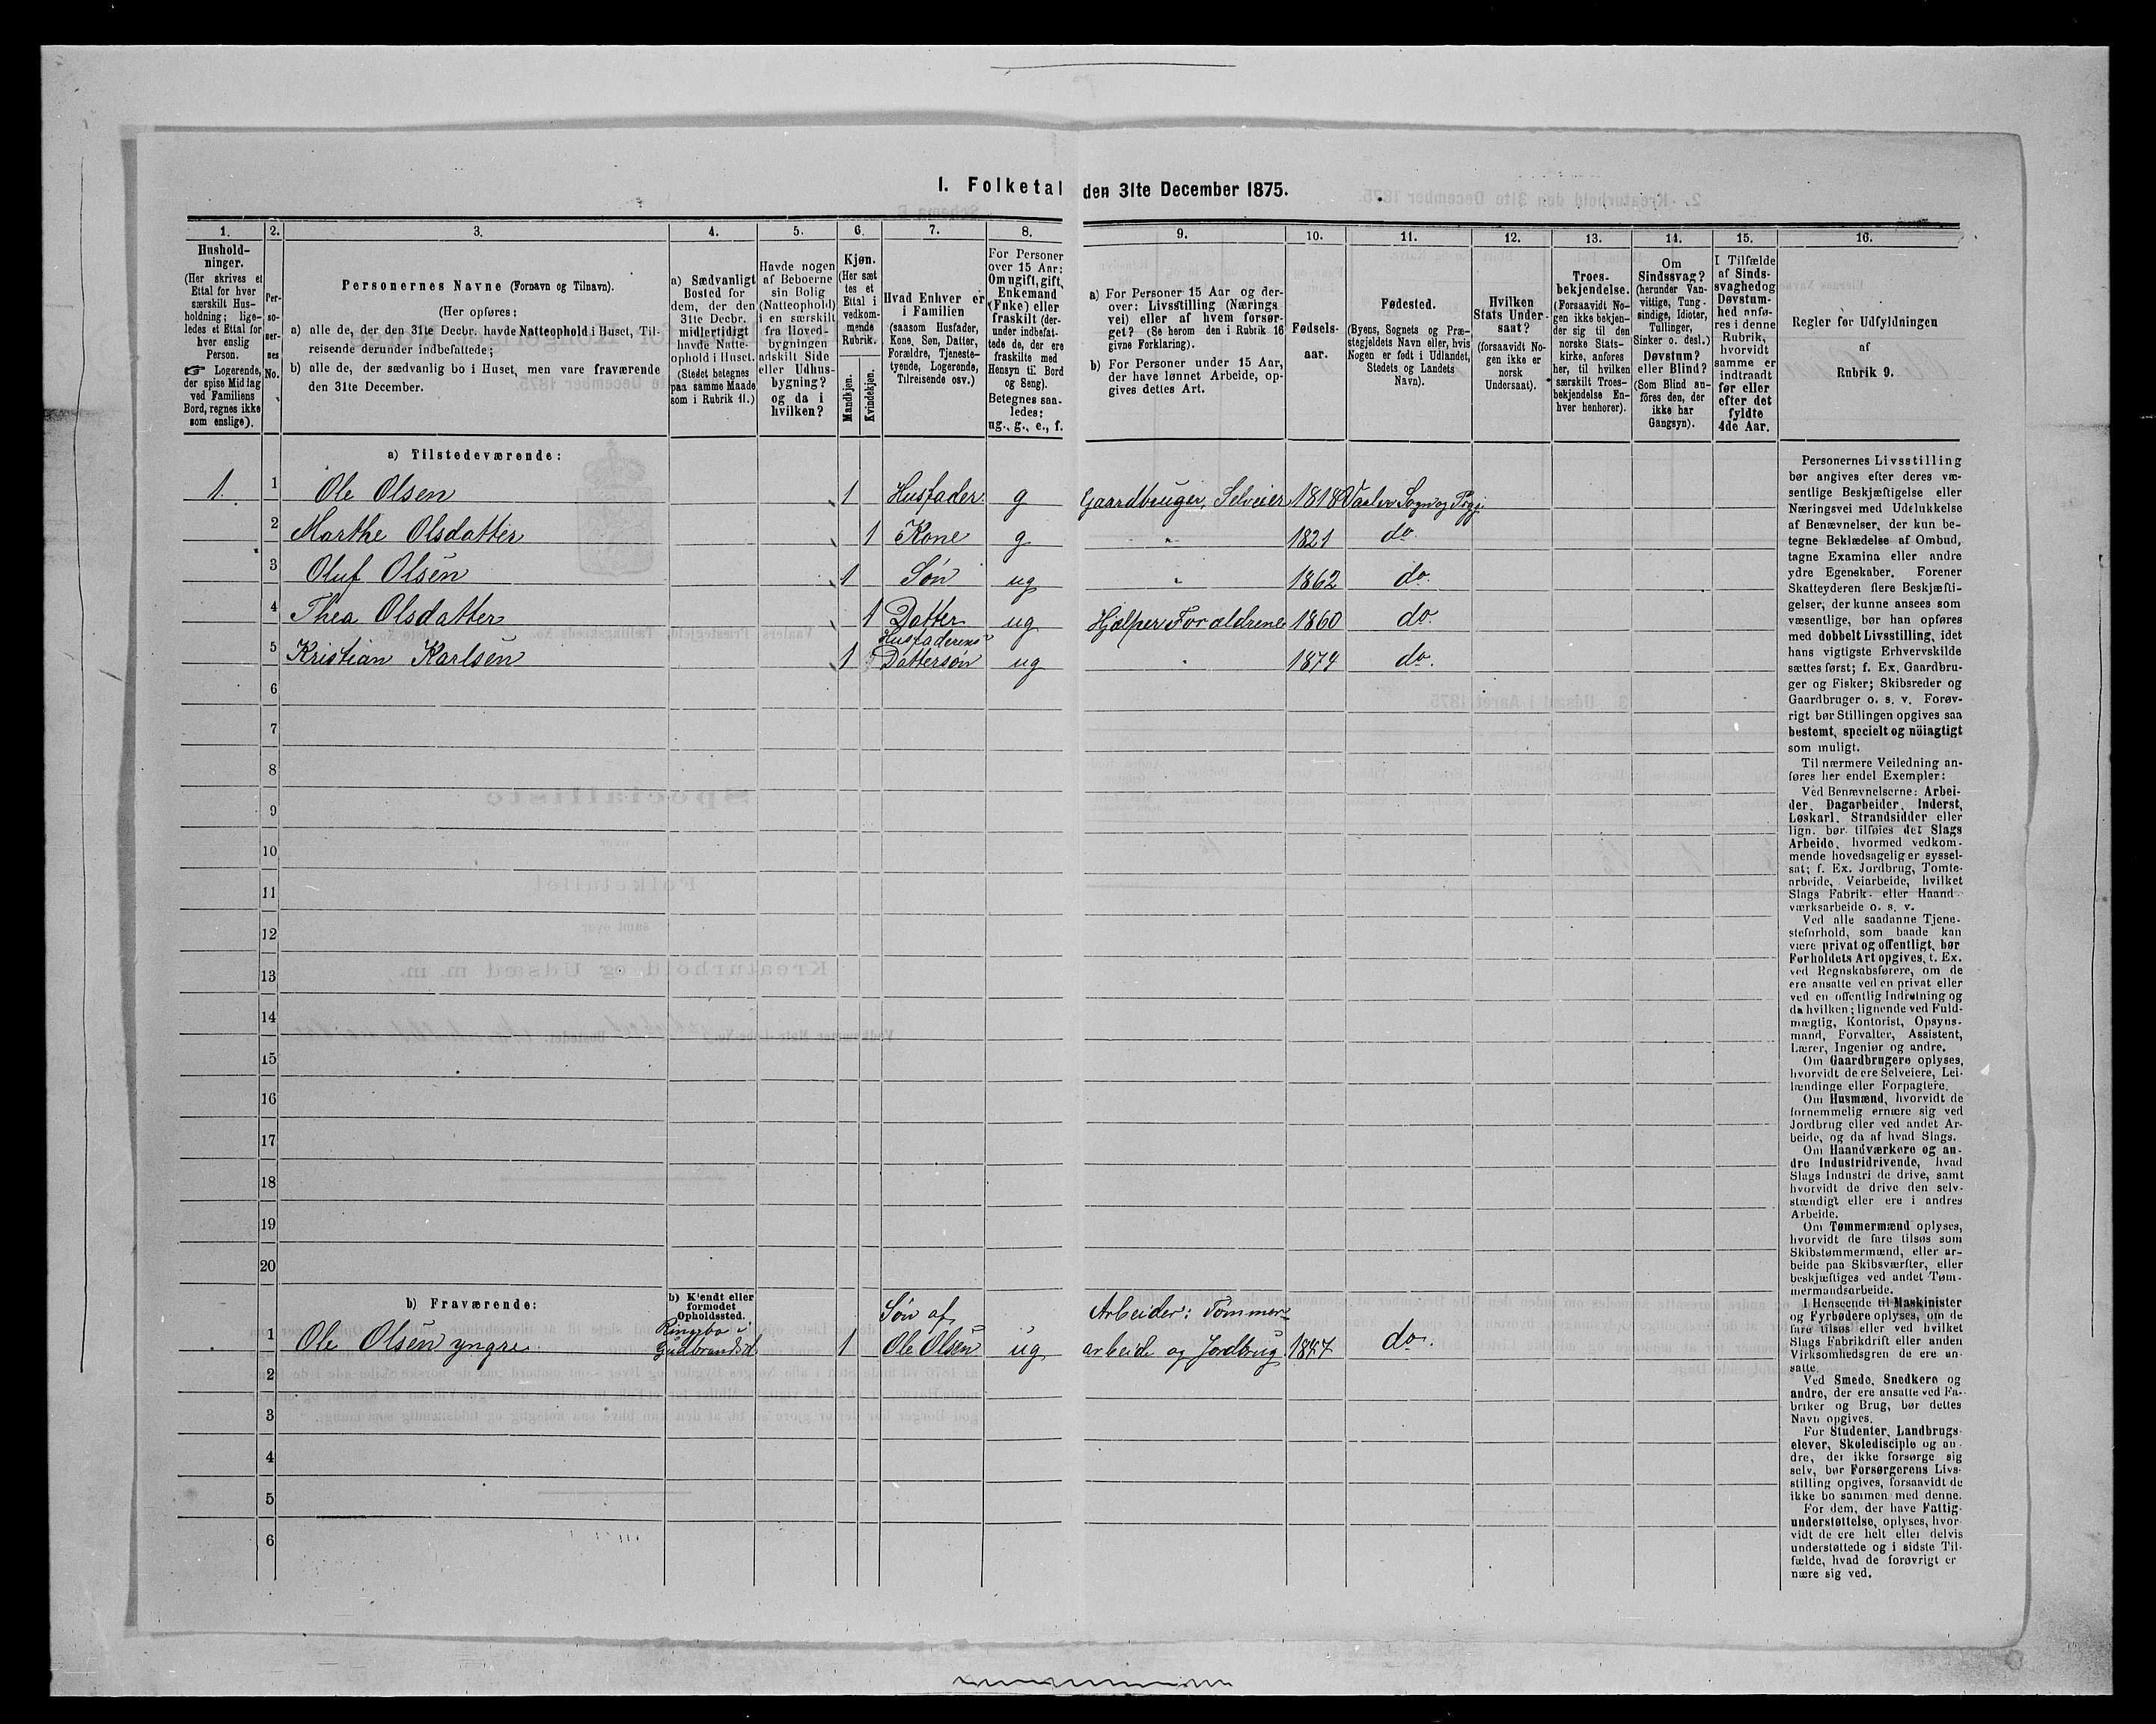 1. Folketal den 31te December 1875.
1.
Hushold-
ninger.
(Her skrives et
Ettal for hver
særskilt Hus-
holdning; lige-
ledes et Ettal for
hver enslig
Person.
☞ Logerende,
der spise Middag
ved Familiens
Bord, regnes ikke
som enslige).
2.
Per-
so-
ner-
nes
No.
3.
Personernes Navne (Fornavn og Tilnavn).
(Her opføres:
a) alle de, der den 31te Decbr. havde Natteophold i Huset, Til-
reisende derunder indbefattede;
b) alle de, der sædvanlig bo i Huset, men vare fraværende
den 31te December.
4.
a) Sædvanligt
Bosted for
dem, der den
31te Decbr.
midlertidigt
havde Natte-
ophold i Huset.
(Stedet betegnes
paa samme Maade
som i Rubrik 11.)
5.
Havde nogen
af Beboerne
sin Bolig
(Natteophold)
i en særskilt
fra Hoved-
bygningen
adskilt Side
eller Udhus-
bygning?
og da i
hvilken?
6.
Kjøn.
(Her sæt
tes et
Ettal i
vedkom-
mende
Rubrik.
Mandkjøn.
Kvindekjøn.
7.
Hvad Enhver er
i Familien
(saasom Husfader,
Kone, Søn, Datter,
Forældre, Tjeneste-
tyende, Logerende,
Tilreisende osv.)
8.
For Personer
over 15 Aar:
Om ugift, gift,
Enkemand
(Enke) eller
fraskilt (der-
under indbefat-
tede de, der ere
fraskilte med
Hensyn til Bord
og Seng).
Betegnes saa-
ledes:
ug., g., e., f.
9.
a) For Personer 15 Aar og der-
over: Livsstilling (Nærings
vei) eller af hvem forsør-
get? (Se herom den i Rubrik 16
givne Forklaring).
b) For Personer under 15 Aar,
der have lønnet Arbeide, op-
gives dettes Art.
10.
Fødsels-
aar.
11.
Fødested.
(Byens, Sognets og Præ-
stegjeldets Navn eller, hvis
Nogen er født i Udlandet,
Stedets og Landets
Navn).
12.
Hvilken
Stats Under-
saat?
(forsaavidt No-
gen ikke er
norsk
Undersaat).
13.
Troes-
bekjendelse.
(Forsaavidt No-
gen ikke bekjen-
der sig til den
norske Stats-
kirke, anføres
her, til hvilken
særskilt Troes-
bekjendelse En-
hver henhører).
14.
Om
Sindssvag?
(herunder Van-
vittige, Tung-
sindige, Idioter,
Tullinger,
Sinker o. desl.)
Døvstum?
eller Blind?
(Som Blind an-
føres den, der
ikke har
Gangsyn).
15.
I Tilfælde
af Sinds-
svaghed og
Døvstum-
hed anfø-
res i denne
Rubrik,
hvorvidt
samme er
indtraadt
før eller
efter det
fyldte
4de Aar.
16.
Regler for Udfyldningen
af
Rubrik 9.
a) Tilstedeværende:
1. 1 Ole Olsen 1 Husfader g Gaardbruger, Selveier 1818 Vaaler Sogn og Prgj.
2 Marthe Olsdatter 1 Kone g " 1821 do.
3 Oluf Olsen 1 Søn ug " 1862 do.
4 Thea Olsdatter 1 Datter ug Hjælper Forældrene 1860 do.
Husfaderens
5 Kristian Karlsen 1 Dattersøn ug " 1874 do.
6
7
8
9
10
11
12
13
14
15
16
17
18
19
20
b) Fraværende:
b) Kjendt eller
formodet
Opholdssted.
Ringebo i Søn af Arbeider: Tømmer-
1 Ole Olsen yngre. Gudbrandsd 1 Ole Olsen ug arbeide og Jordbrug 1847 do.
2
3
4
5
6
Personernes Livsstilling
bør angives efter deres væ-
sentlige Beskjæftigelse eller
Næringsvei med Udelukkelse
af Benævnelser, der kun be-
tegne Beklædelse af Ombud,
tagne Examina eller andre
ydre Egenskaber. Forener
Skatteyderen flere Beskjæfti-
gelser, der kunne ansees som
væsentlige, bør han opføres
med dobbelt Livsstilling, idet
hans vigtigste Erhvervskilde
sættes først; f. Ex. Gaardbru-
ger og Fisker; Skibsreder og
Gaardbruger o. s. v. Forøv-
rigt bør Stillingen opgives saa
bestemt, specielt og nöiagtigt
som muligt.
Til nærmere Veiledning an-
føres her endel Exempler:
Ved Benævnelserne: Arbei-
der, Dagarbeider, Inderst,
Løskarl, Strandsidder eller
lign. bør tilføies det Slags
Arbeide, hvormed vedkom-
mende hovedsagelig er syssel-
sat; f. Ex. Jordbrug, Tomte-
arbeide, Veiarbeide, hvilket
Slags Fabrik- eller Haand-
værksarbeide o. s. v.
Ved alle saadanne Tjene-
steforhold, som baade kan
være privat og offentligt, bør
Forholdets Art opgives, t. Ex.
ved Regnskabsførere, om de
ere ansatte ved en privat eller
ved en offentlig Indretning og
da hvilken; lignende ved Fuld-
mægtig, Kontorist, Opsyns-
mand, Forvalter, Assistent,
Lærer, Ingeniør og andre.
Om Gaardbrugere oplyses,
hvorvidt de ere Selveiere, Lei-
lændinge eller Forpagtere.
Om Husmænd, hvorvidt de
fornemmelig ernære sig ved
Jordbrug eller ved andet Ar-
beide, og da af hvad Slags.
Om Haandværkere og an-
dre Industridrivende, hvad
Slags Industri de drive, samt
hvorvidt de drive den selv-
stændigt eller ere i andres
Arbeide.
Om Tømmermænd oplyses,
hvorvidt de fare tilsøs som
Skibstømmermænd, eller ar-
beide paa Skibsværfter, eller
beskjæftiges ved andet Tøm-
mermandsarbeide.
I Henseende til Maskinister
og Fyrbødere oplyses, om de
fare tilsøs eller ved hvilket
Slags Fabrikdrift eller anden
Virksomhedsgren de ere an-
satte.
Ved Smede, Snedkere og
andre, der ere ansatte ved Fa-
briker og Brug, bør dettes
Navn opgives.
For Studenter, Landbrugs-
elever, Skoledisciple og an-
dre, der ikke forsørge sig
selv, bør Forsørgerens Livs-
stilling opgives, forsaavidt de
ikke bo sammen med denne.
For dem, der have Fattig-
understøttelse, oplyses, hvor-
vidt de ere helt eller delvis
understøttede og i sidste Til-
fælde, hvad de forøvrigt er
nære sig ved.